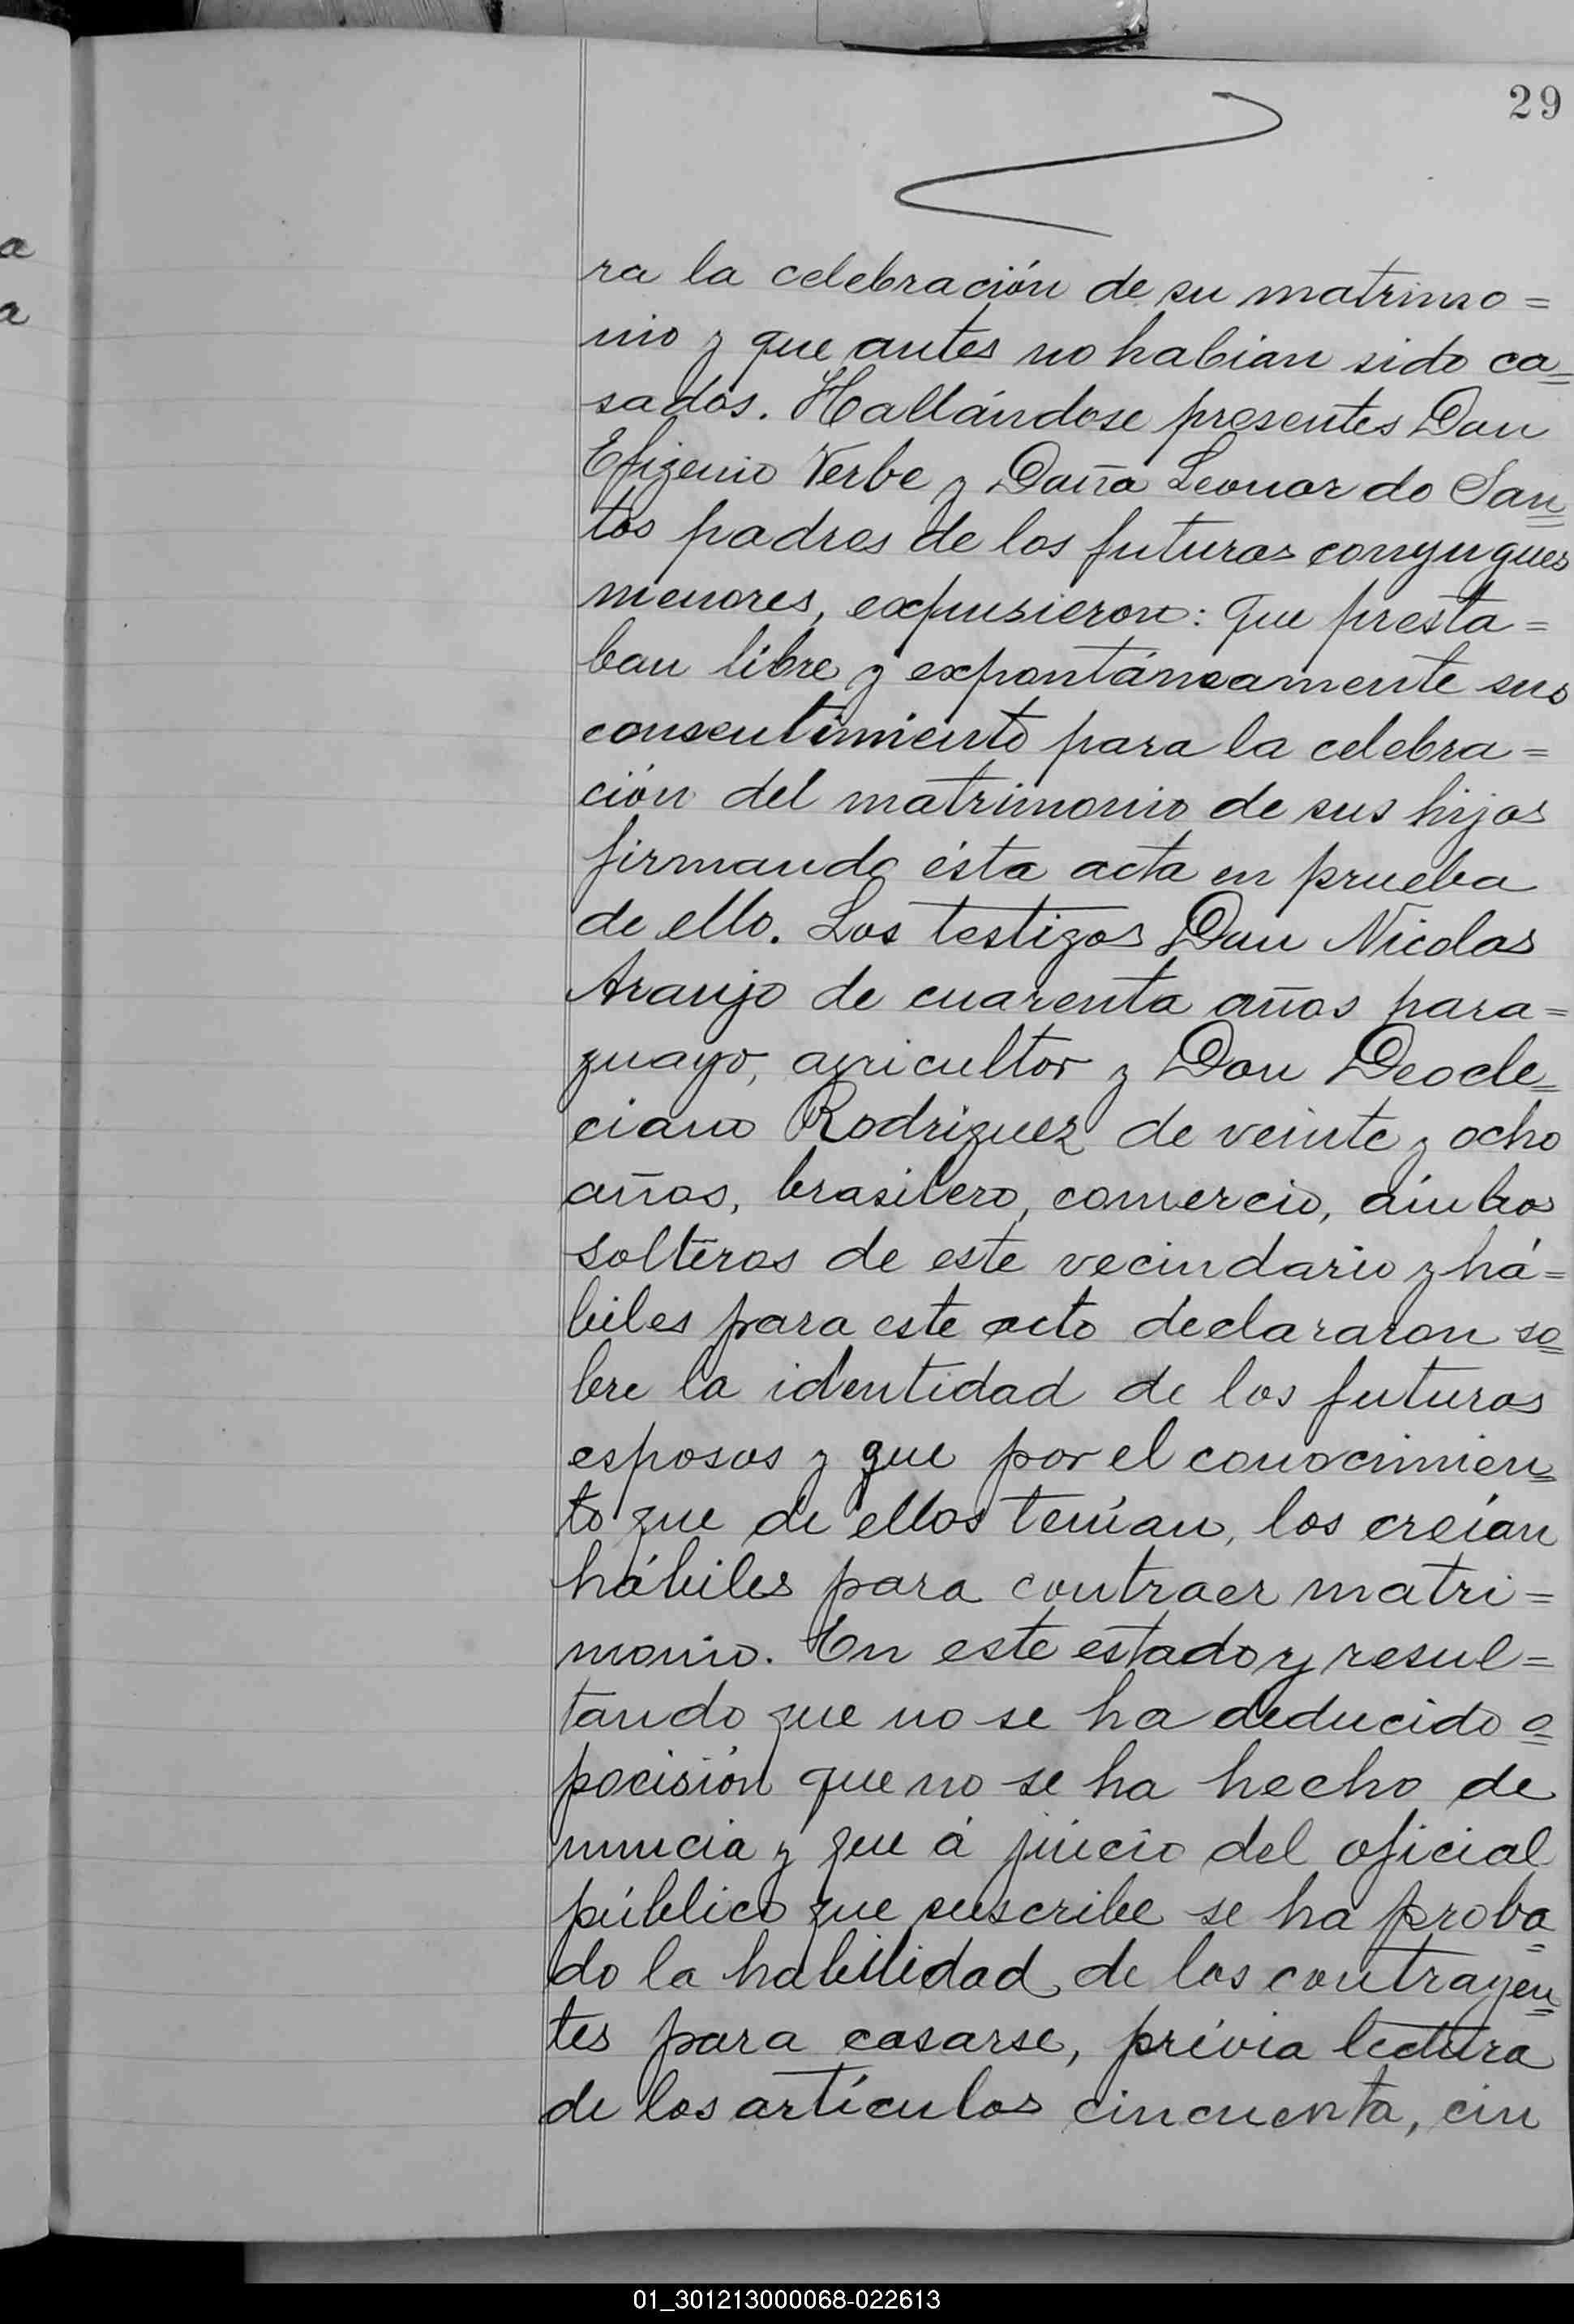 29
a
a
ra la celebración de su matrimo=
nio y que antes no habian sido ca=
sados. Hallándose presentes Don
Efigenio Verbe y Doña Leonor do San=
tos padres de los futuros conyugues
menores, expusieron: que presta=
ban libre y expontáneamente sus
consentimiento para la celebra=
ción del matrimonio de sus hijos
firmando ésta acta en prueba
de ello. Los testigos Don Nicolas
Araujo de cuarenta años para=
guayo, agricultor y Don Deocle=
ciano Rodriguez de veinte y ocho
años, brasilero, comercio, ámbos
solteros de este vecindario y há=
biles para este acto declararon so=
bre la identidad de los futuros
esposos y que por el conocimien=
to que de ellos tenían, los creían
hábiles para contraer matri=
monio. En este estado y resul=
tando que no se ha deducido o=
pocisión que no se ha hecho de
nuncia y que á juicio del oficial
público que suscribe se ha proba=
do la habilidad de los contrayen=
tes para casarse, prévia lectura
de los artículos cincuenta, cin
01_301213000068-022613